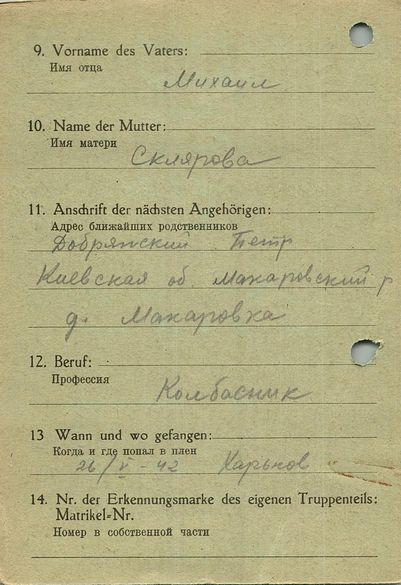 9. Vorname des Vaters:
Имя отца
Михаил
10. Name der Mutter:
Имя матери
Склярова
11. Anschrift der nächsten Angehörigen:
Адрес ближайших родственников
Добрянский Петр
Киевская об. Макаровский р
д. Макаровка
12. Beruf:
Профессия
Колбасник
13 Wann und wo gefangen:
Когда и где попал в плен
26/V-42 Харьков
14. Nr. der Erkennungsmarke des eigenen Truppenteils:
Matrikel-Nr.
Номер в собственной части